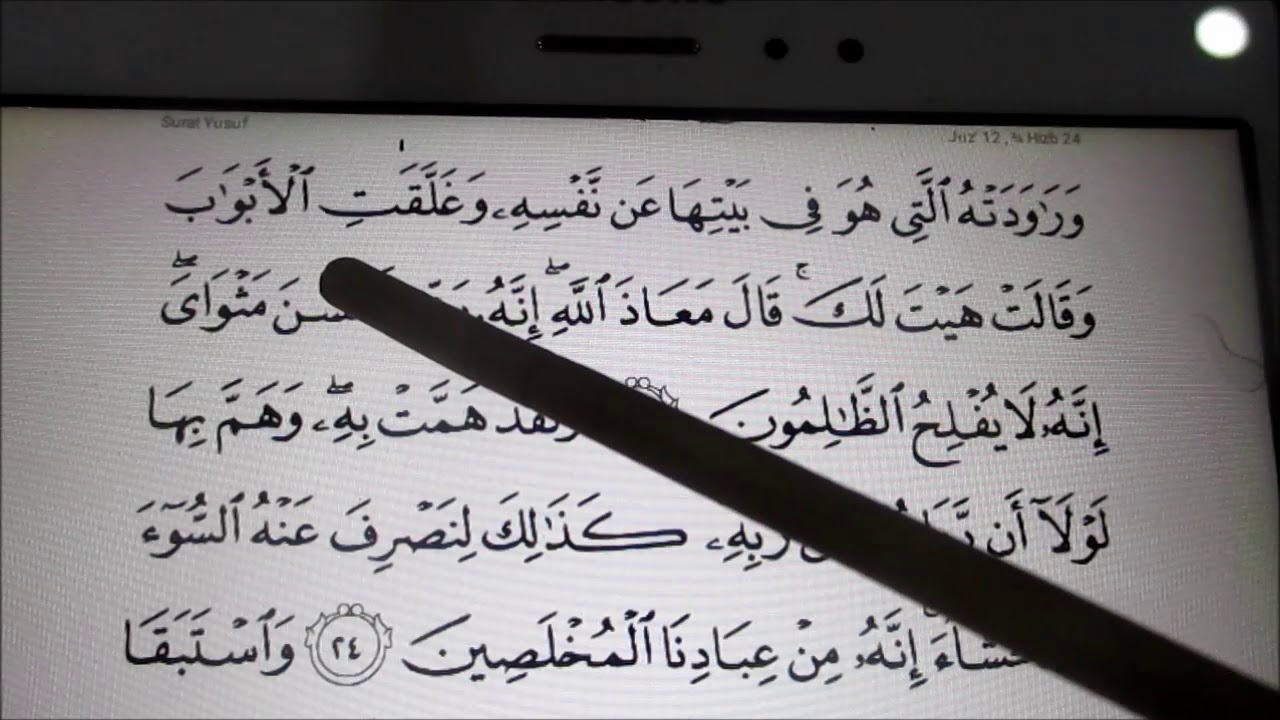 Surat Yusuf
Juz' 12 , ¾ Hizb 24
وَرَٰوَدَتْهُ ٱلَّتِى هُوَ فِى بَيْتِهَا عَن نَّفْسِهِۦ وَغَلَّقَتِ ٱلْأَبْوَٰبَ
وَقَالَتْ هَيْتَ لَكَ ۚ قَالَ مَعَاذَ ٱللَّهِ ۖ إِنَّهُۥ مَثْوَاىَ ۖ
إِنَّهُۥ لَا يُفْلِحُ ٱلظَّٰلِمُونَ هَمَّتْ بِهِۦ ۖ وَهَمَّ بِهَا
لَوْلَآ أَن رَبِّهِۦ كَذَٰلِكَ لِنَصْرِفَ عَنْهُ ٱلسُّوٓءَ
إِنَّهُۥ مِنْ عِبَادِنَا ٱلْمُخْلَصِينَ ٢٤ وَٱسْتَبَقَا